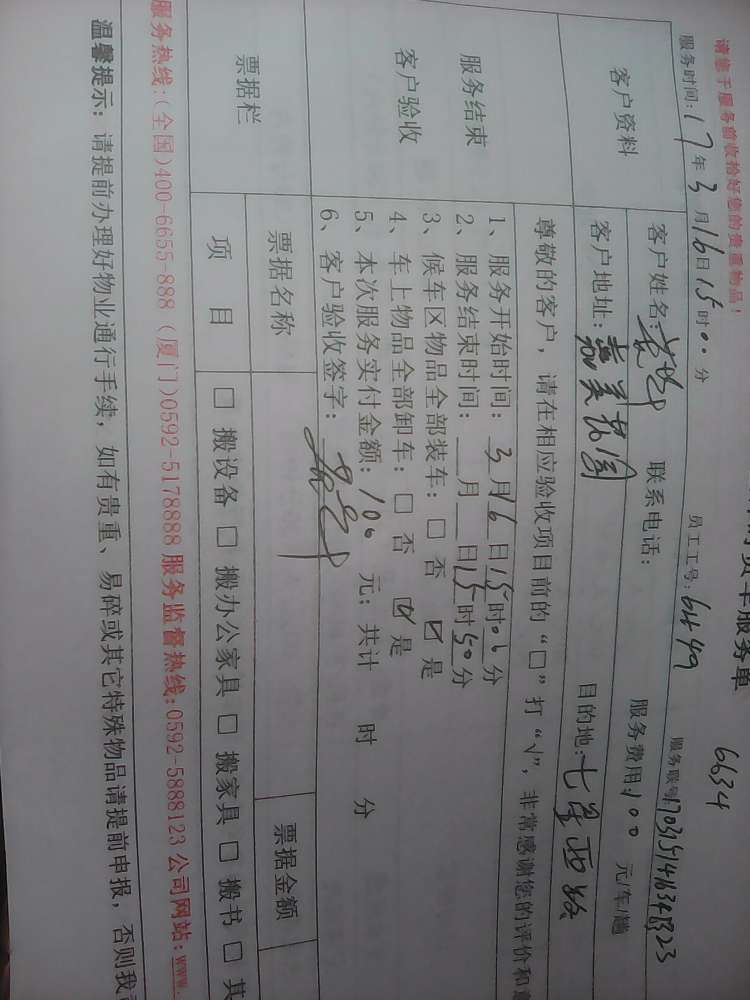 货车服务单
6634
请您于服务前收拾好您的贵重物品！
服务时间：17年3月16日15时00分 员工工号：6449 服务联号
客户资料
客户姓名： 联系电话： 服务费用：100 元/车/趟
客户地址：嘉美花园 目的地：七星西路
尊敬的客户，请在相应验收项目前的“□”打“√”，非常感谢您的评价和
服务结束
客户验收
1、服务开始时间：3月16日15时00分
2、服务结束时间：__月__日15时50分
3、候车区物品全部装车：□ 否 ☑ 是
4、车上物品全部卸车：□ 否 ☑ 是
5、本次服务实付金额：100 元；共计 时 分
6、客户验收签字：
票据栏
票据名称 票据金额
项 目 □ 搬设备 □ 搬办公家具 □ 搬家具 □ 搬书 □ 其
服务热线：(全国)400-6655-888 (厦门)0592-5178888 服务监督热线：0592-5888123 公司网站：www.
温馨提示：请提前办理好物业通行手续，如有贵重、易碎或其它特殊物品请提前申报，否则我